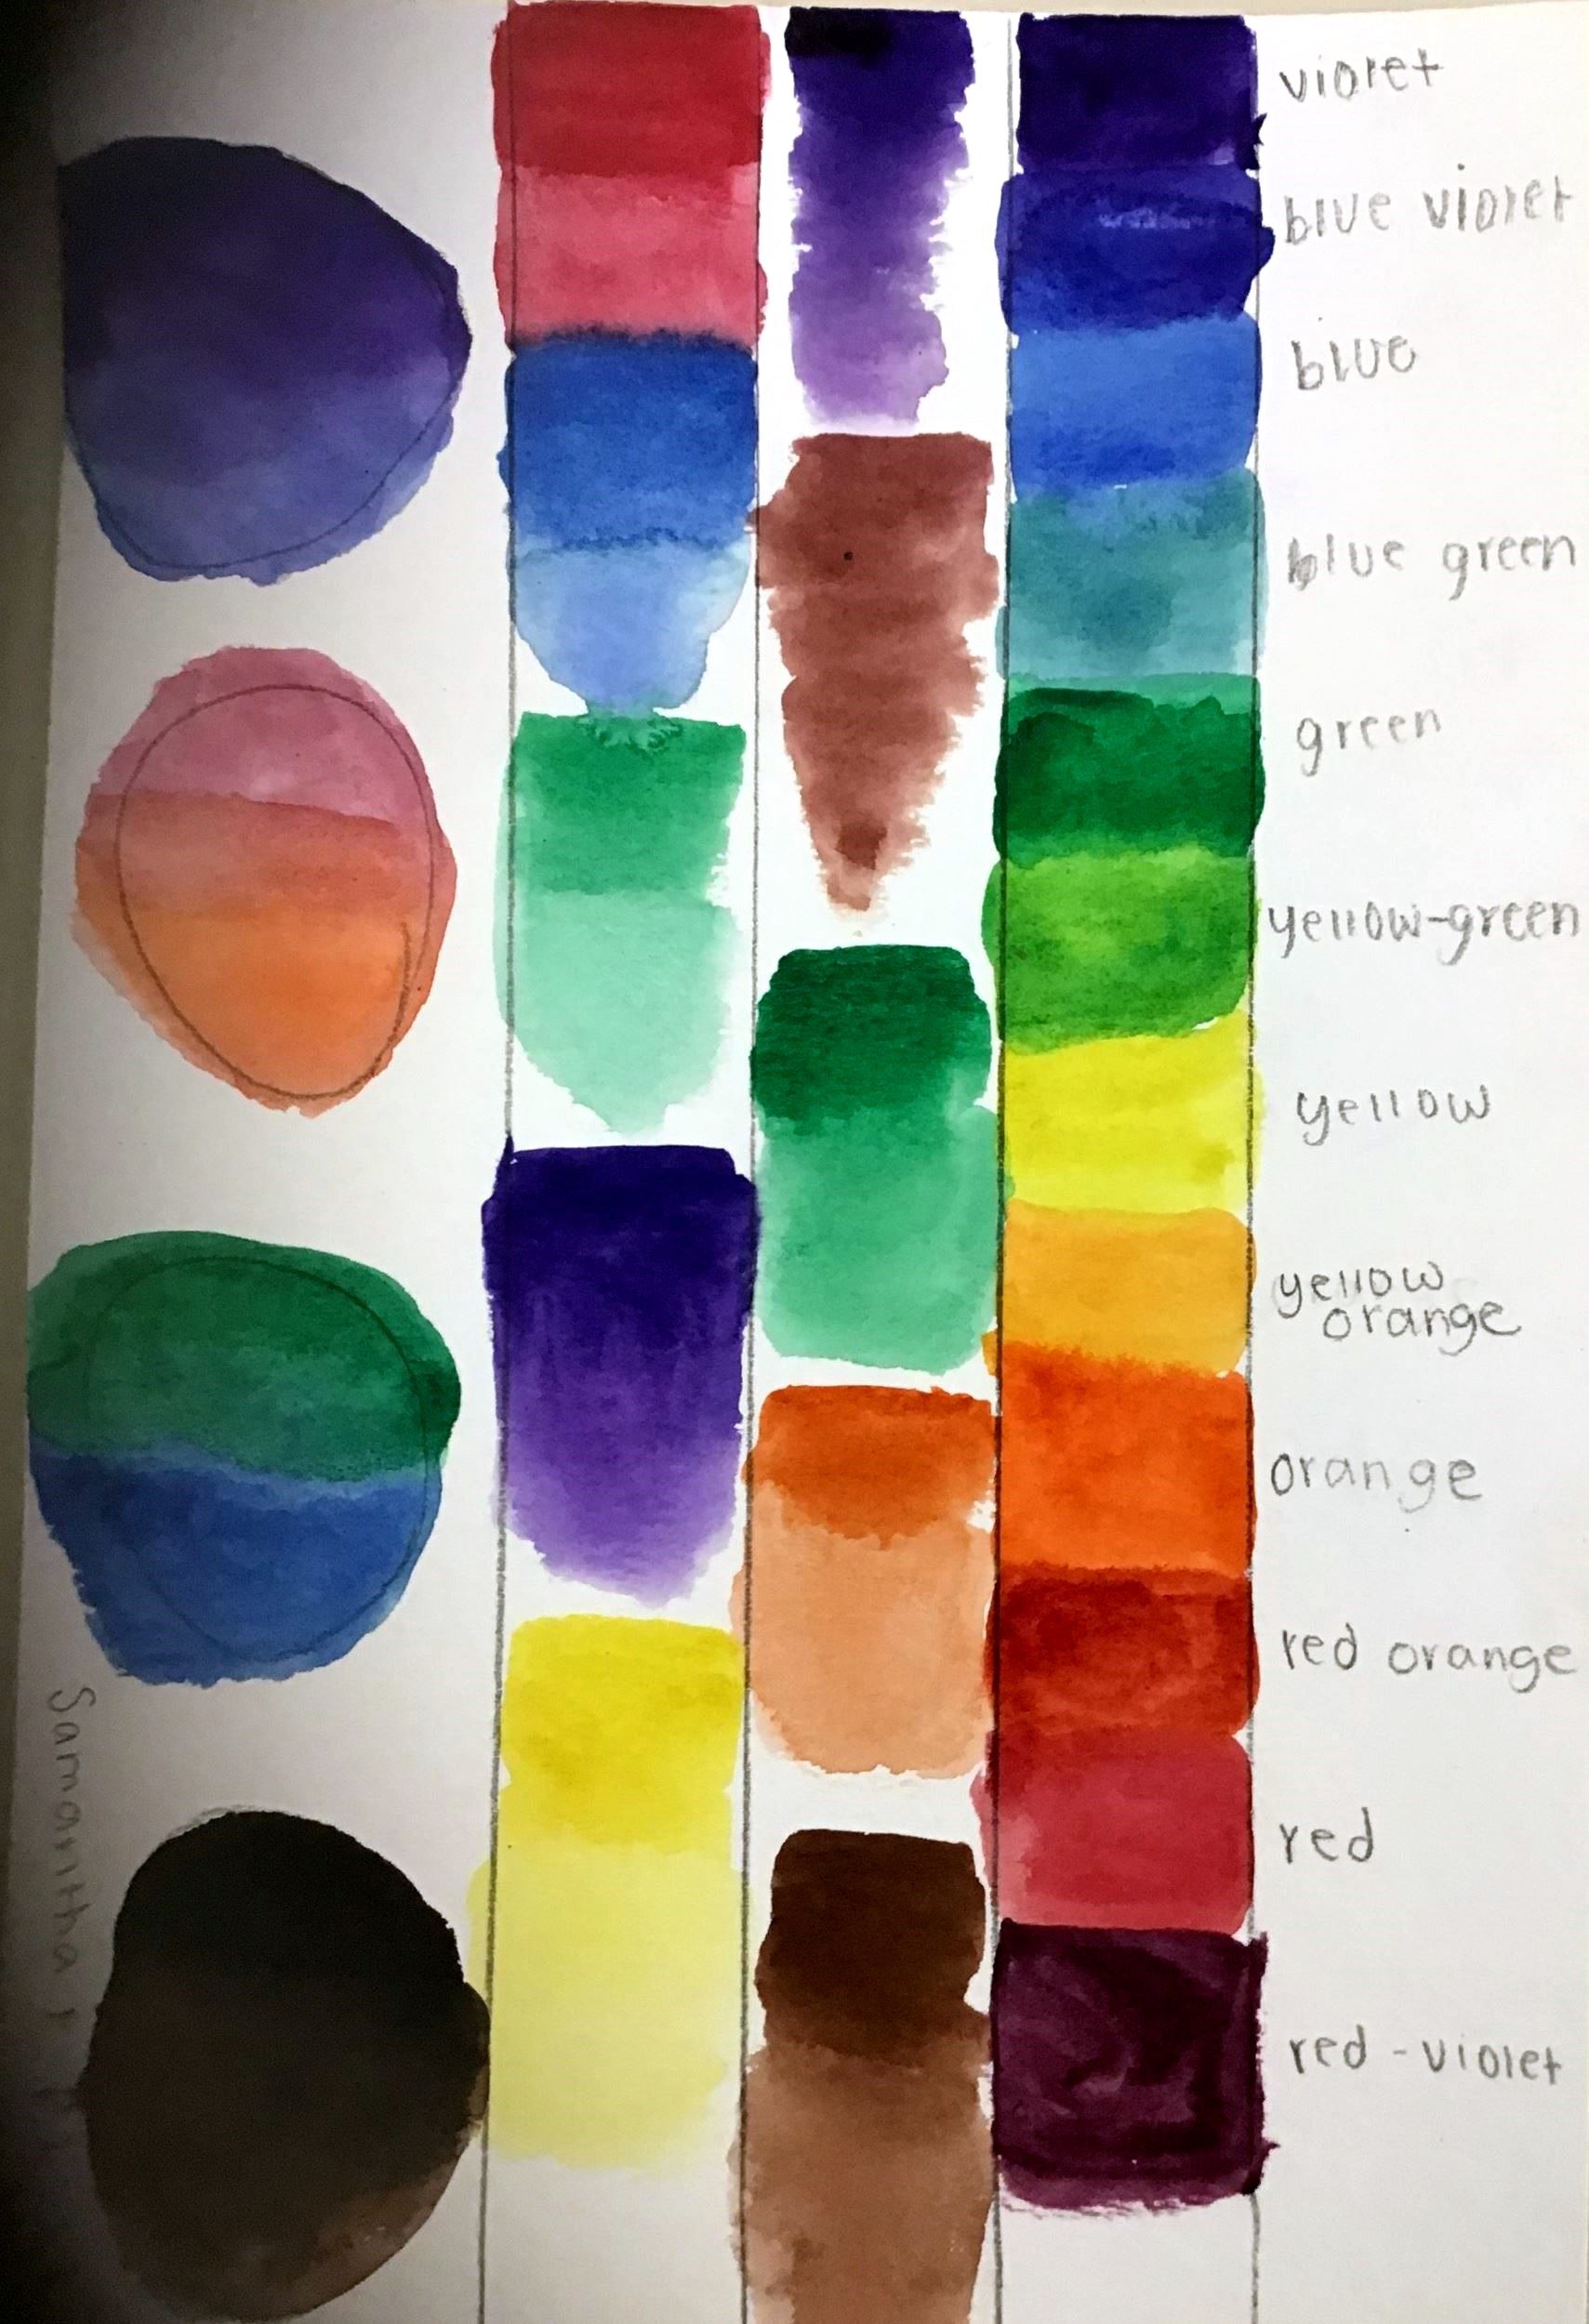 violet
blue violet
blue
blue green
green
yellow-green
yellow
yellow
orange
orange
red orange
red
red-violet